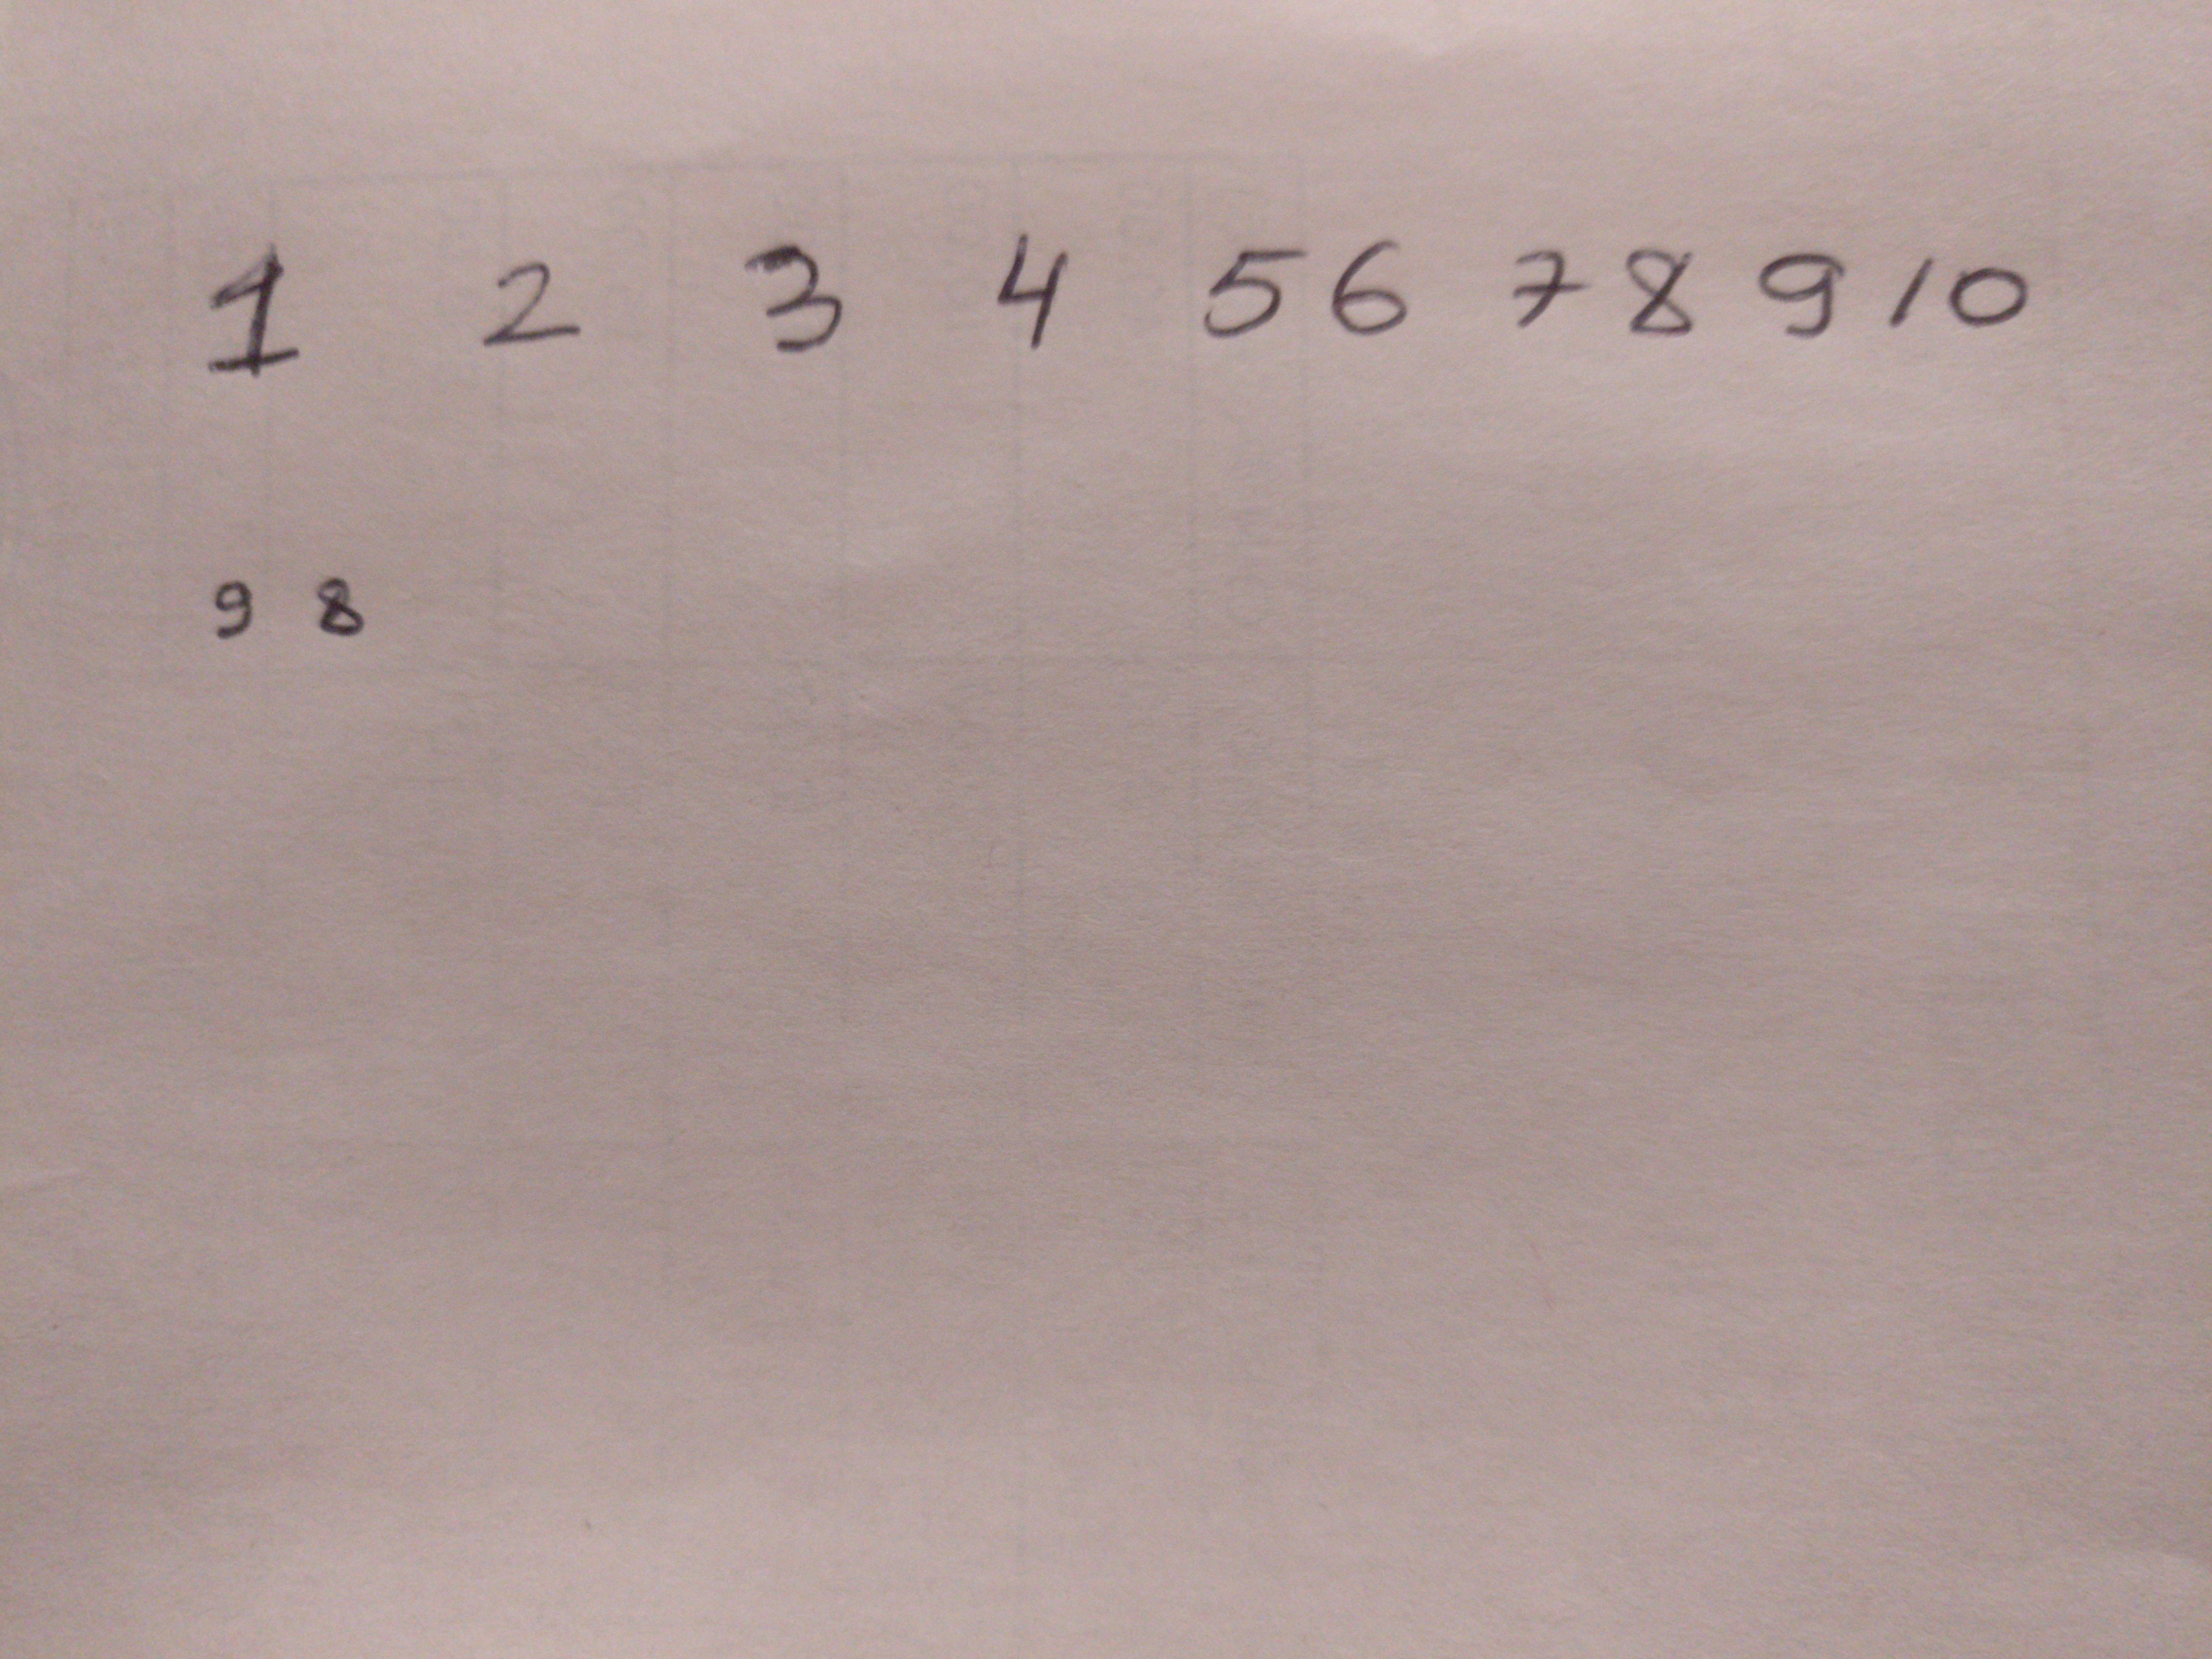 1 2 3 4 5 6 7 8 9 10
9 8